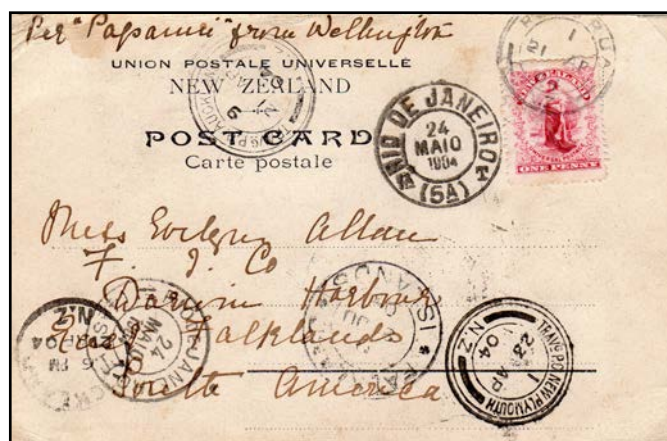 Per "Papanui" from Wellington
UNION POSTALE UNIVERSELLE
NEW ZEALAND
POST CARD
Carte postale
RIO DE JANEIRO
24
MAIO
1904
(5A)
NEW ZEALAND
ONE PENNY
Miss Evelyn Allan
F. I. Co
Darwin Harbour
East Falklands
South America
6 PM
04
N.Z
24
MAIO
TRAVG P.O. NEW PLYMOUTH
23 AP
04
N.Z